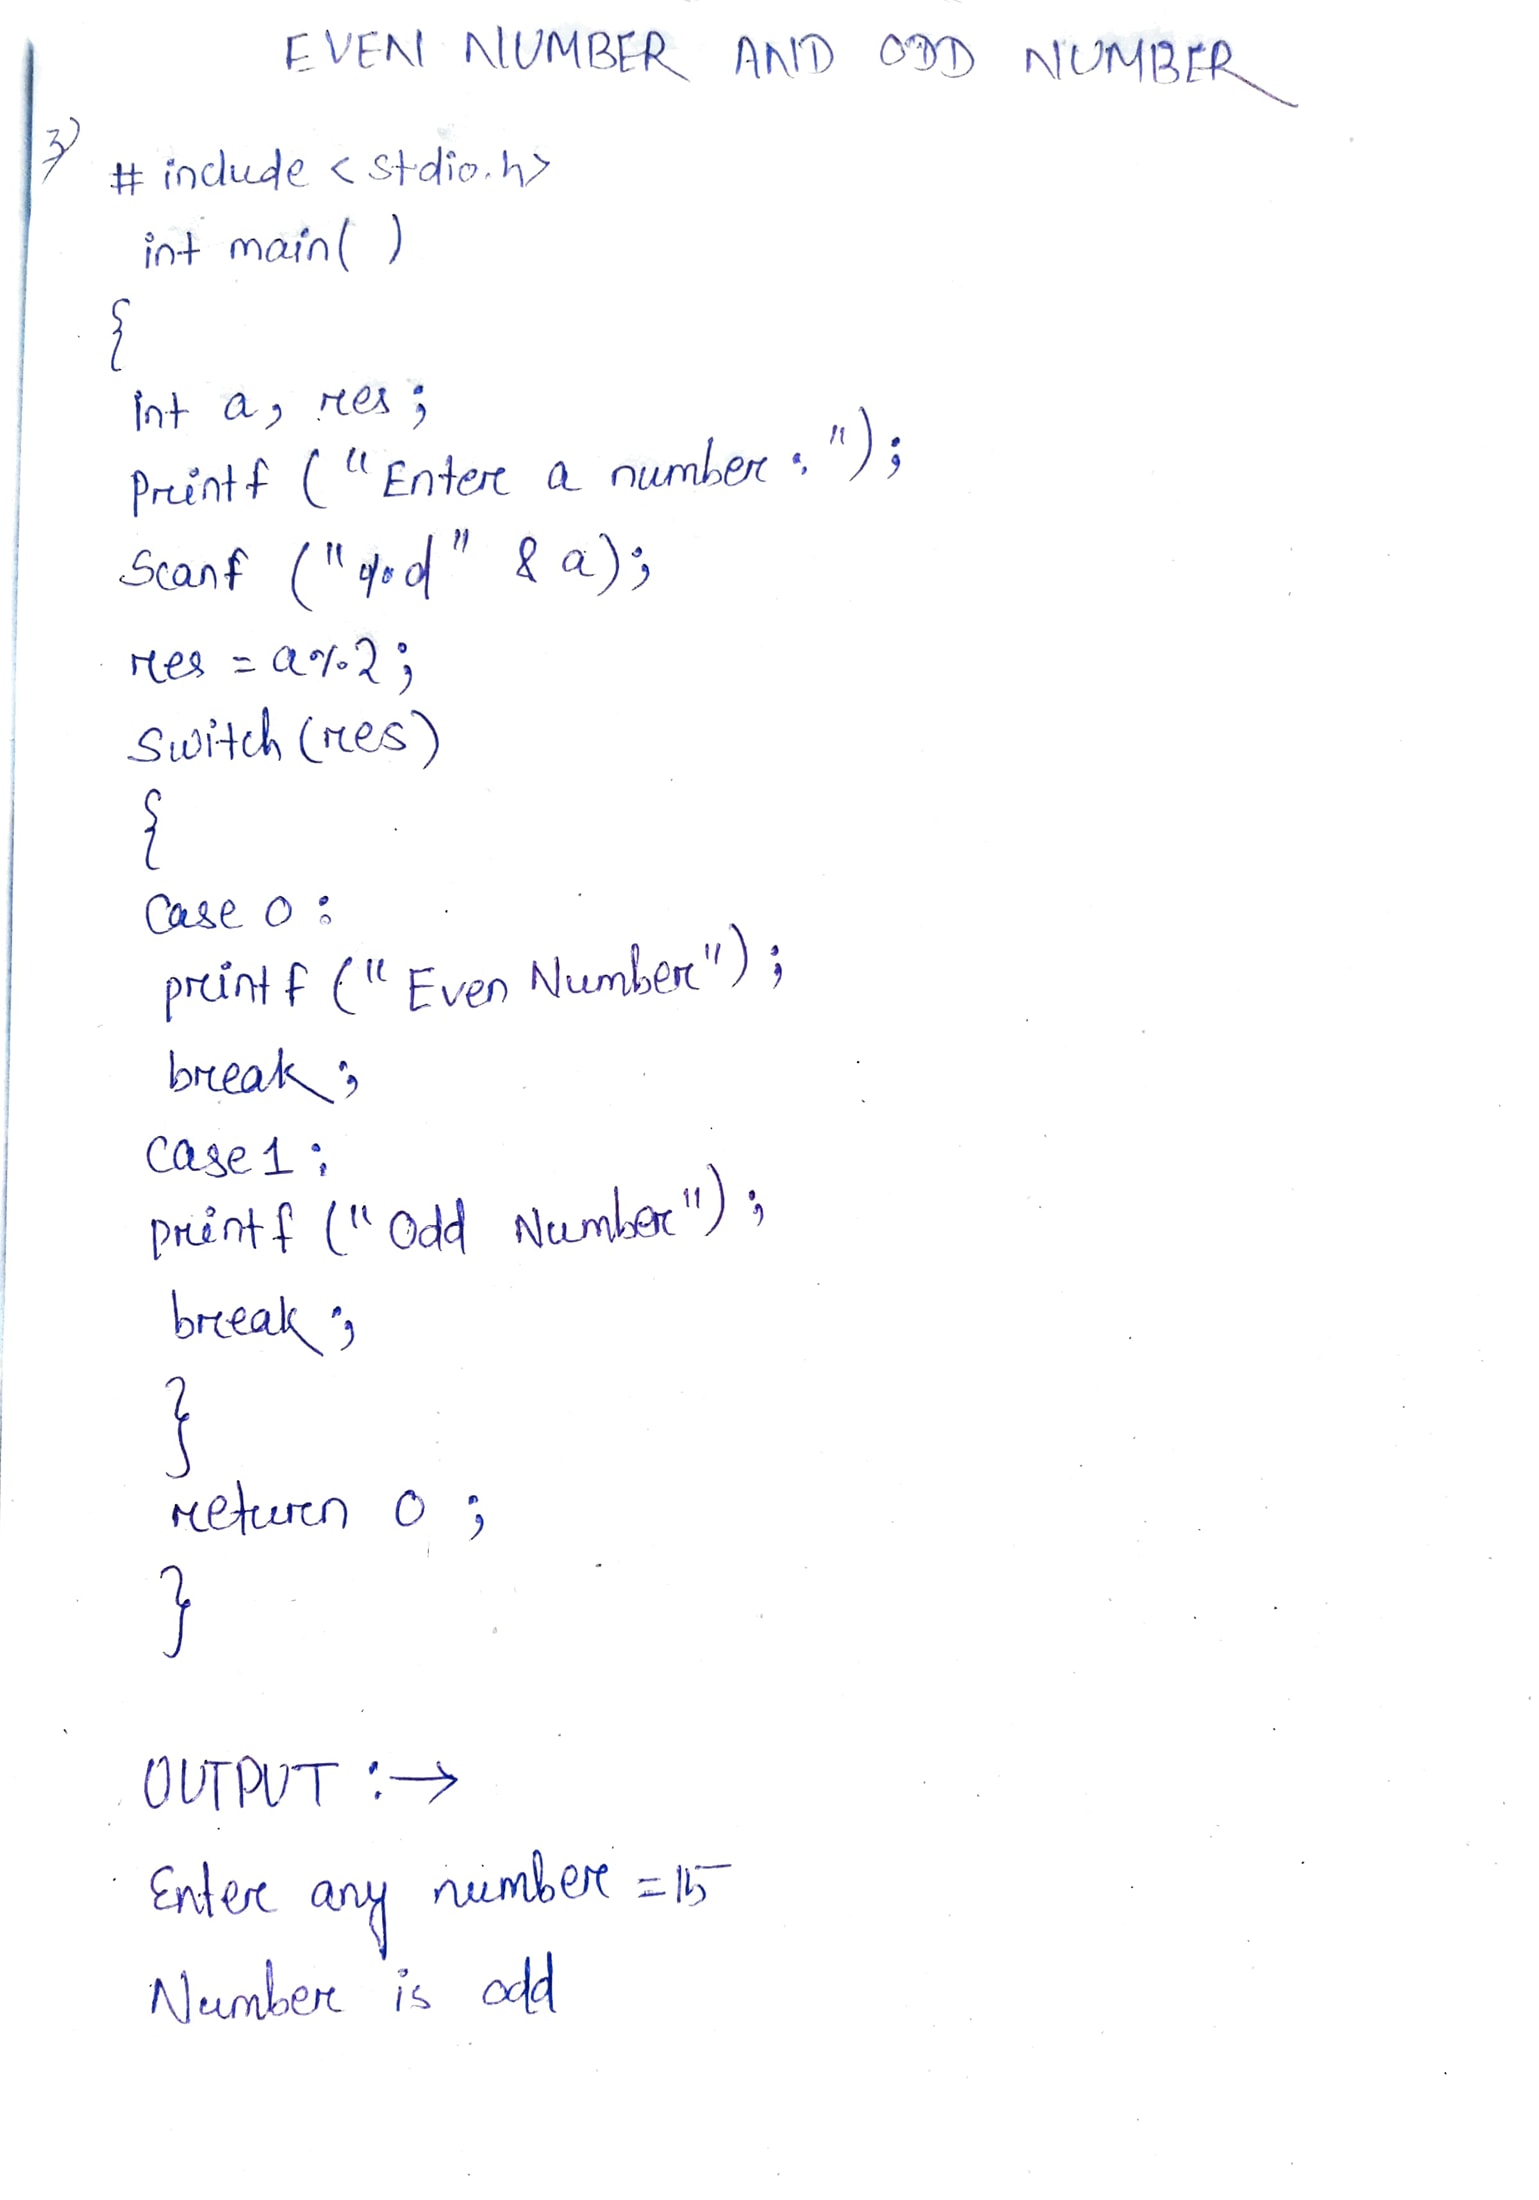 EVEN NUMBER AND ODD NUMBER
3)
# include <stdio.h>
int main( )
{
int a, res;
Printf ("Enter a number : ");
Scanf ("%d" & a);
res = a%2;
Switch (res)
{
Case 0 :
printf ("Even Number");
break;
Case 1 :
printf ("Odd Number");
break;
}
return 0 ;
}
OUTPUT :→
Enter any number = 15
Number is odd